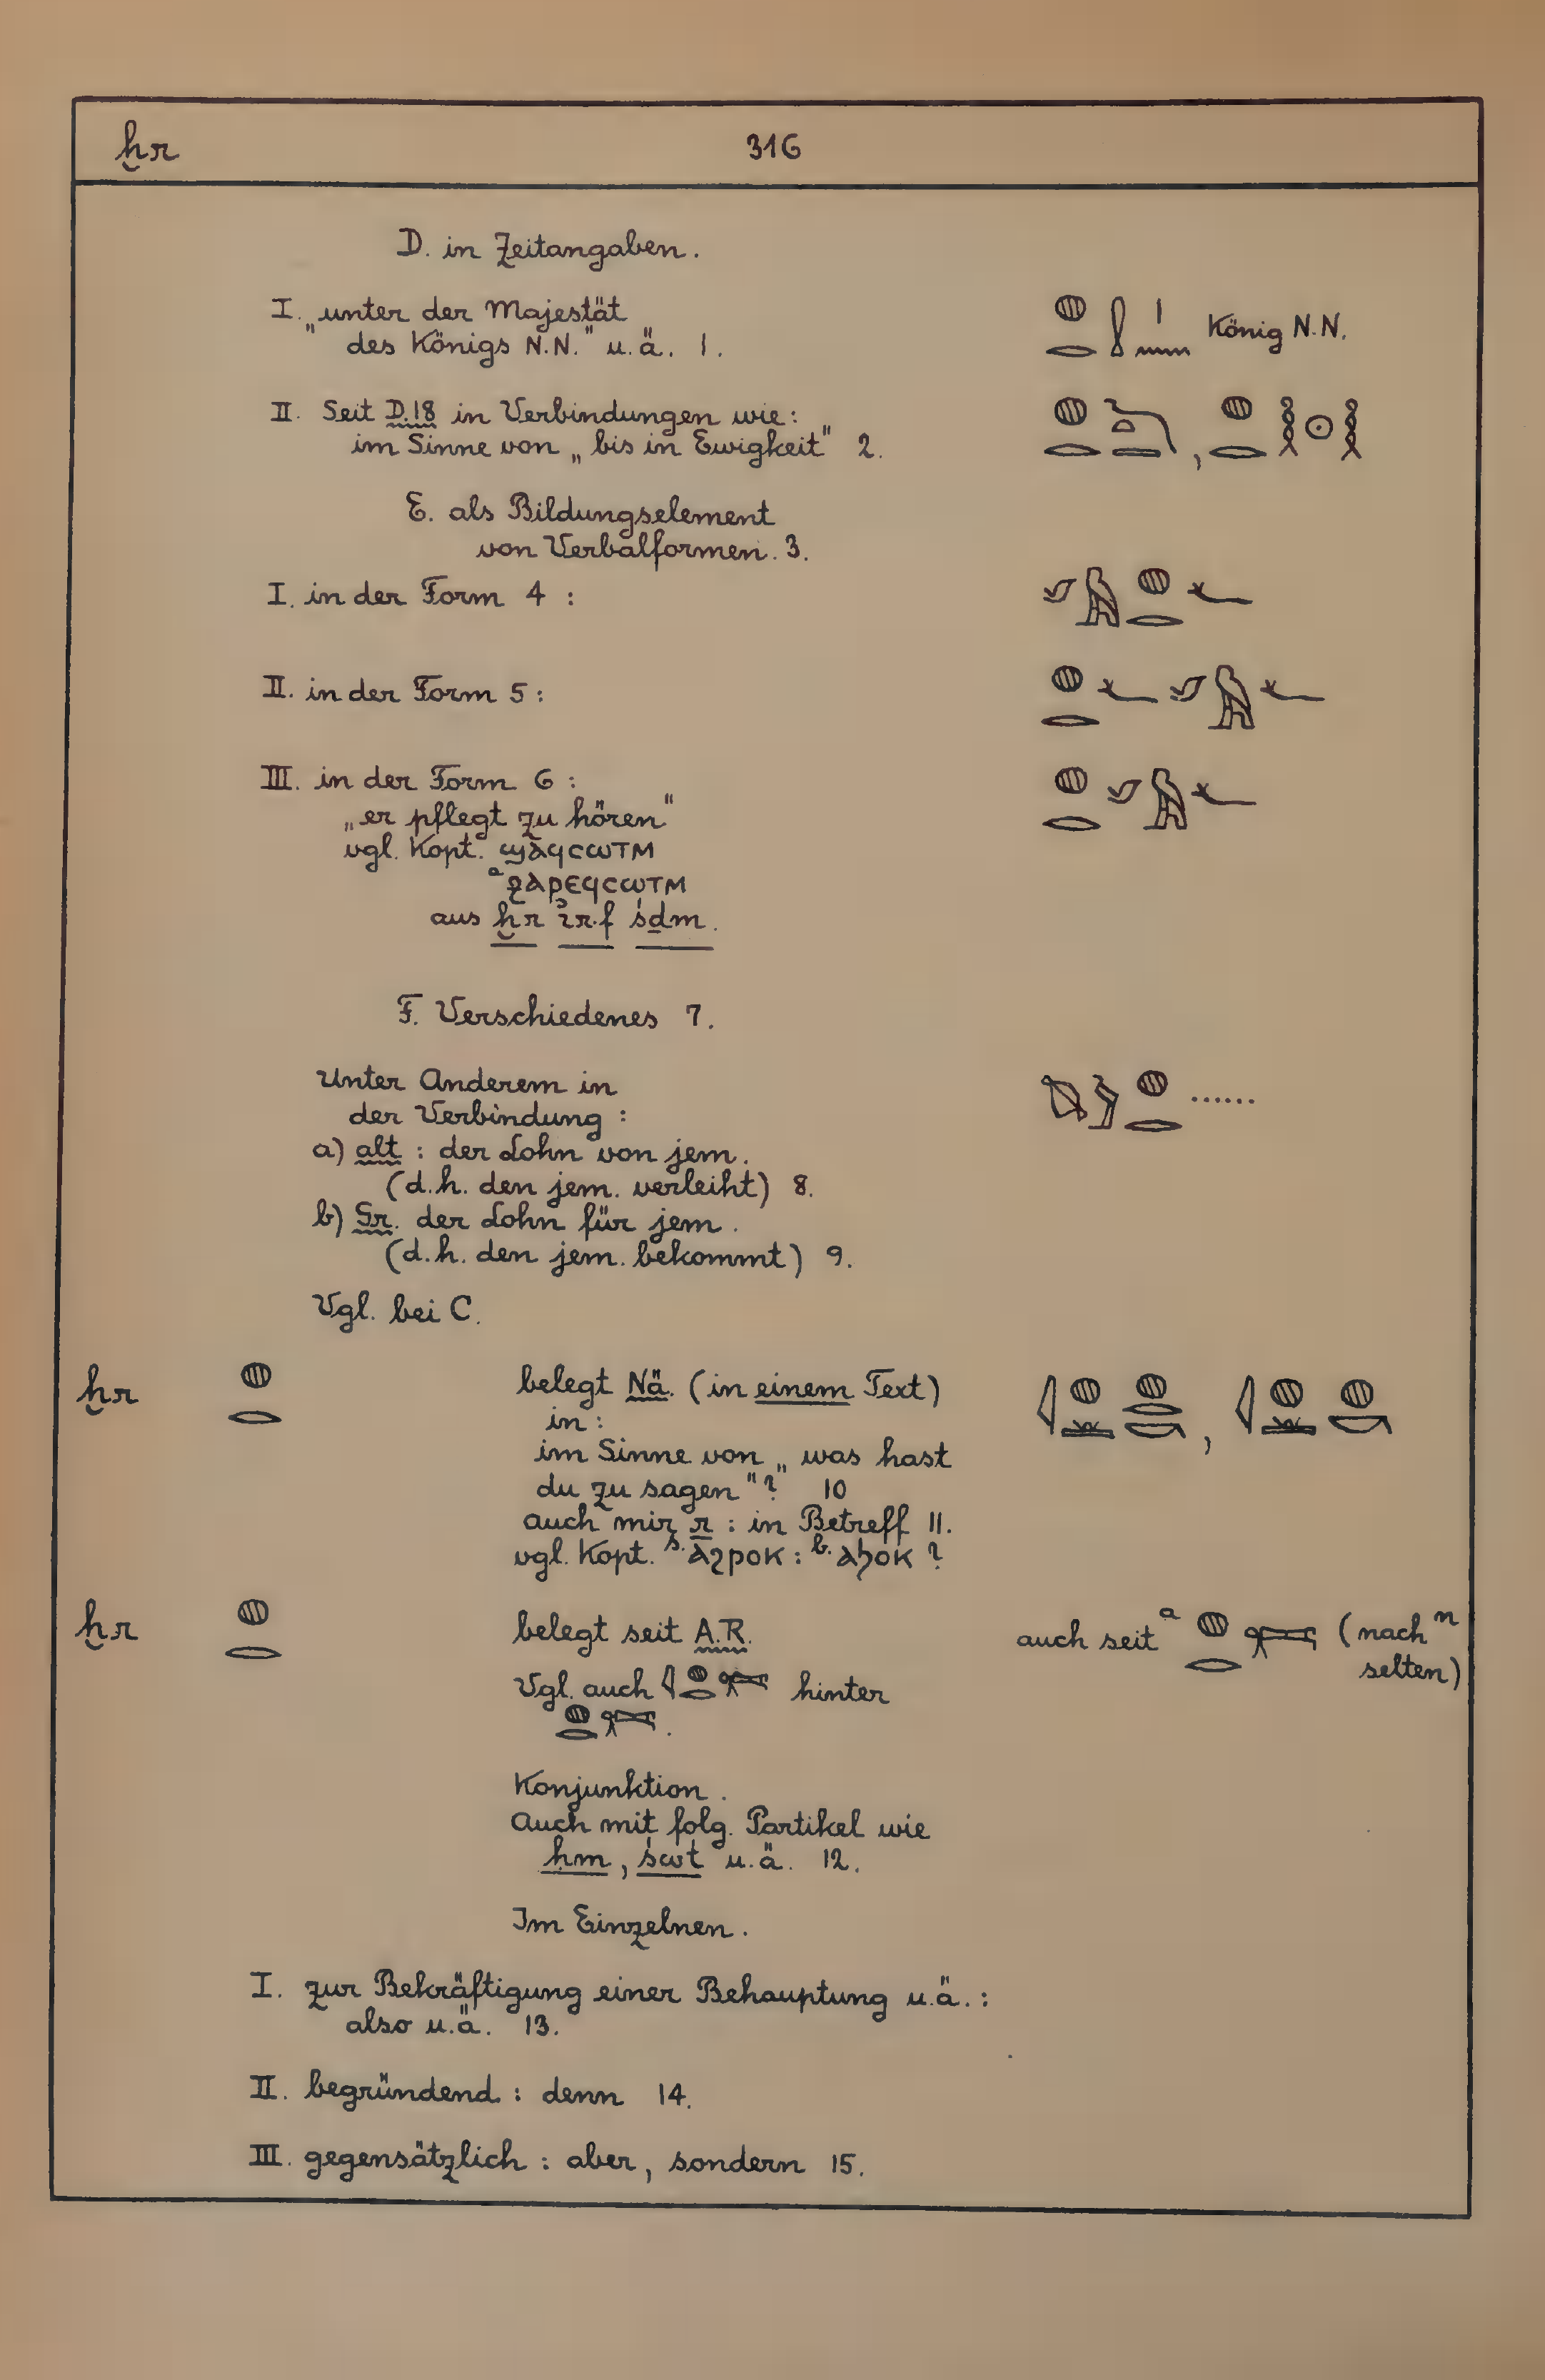 ḫr 316
D. in Zeitangaben.
I. „unter der Majestät 𓐍𓂋𓍛𓏤𓈖 König N.N.
des Königs N.N." u. ä. 1.
II. Seit D.18 in Verbindungen wie: 𓐍𓂋𓆓𓏏𓇿, 𓐍𓂋𓎛𓇳𓎛
im Sinne von „bis in Ewigkeit" 2.
E. als Bildungselement
von Verbalformen. 3.
I. in der Form 4 : 𓄔𓅓𓐍𓂋𓆑
II. in der Form 5 : 𓐍𓂋𓆑𓄔𓅓𓆑
III. in der Form 6 : 𓐍𓂋𓄔𓅓𓆑
„er pflegt zu hören"
vgl. Kopt. ϣⲁϥⲥⲱⲧⲙ
a ϩⲁⲣⲉϥⲥⲱⲧⲙ
aus ḫr ı͗r.f śḏm.
F. Verschiedenes 7.
Unter Anderem in
der Verbindung : 𓐍𓂋 ......
a) alt : der Lohn von jem.
(d.h. den jem. verleiht) 8.
b) Gr. der Lohn für jem.
(d.h. den jem. bekommt) 9.
Vgl. bei C.
ḫr 𓐍𓂋 belegt Nä. (in einem Text) 𓇋𓐍𓏛𓐍𓂋𓎡, 𓇋𓐍𓏛𓐍𓎡
in :
im Sinne von „was hast
du zu sagen"? 10
auch mir r : in Betreff 11.
vgl. Kopt. s. ⲁϩⲣⲟⲕ : b. ⲁϧⲟⲕ ?
ḫr 𓐍𓂋 belegt seit A.R. auch seit a 𓐍𓂋 (nach n
selten)
Vgl. auch 𓇋𓐍𓂋 hinter
𓐍𓂋.
Konjunktion.
Auch mit folg. Partikel wie
ḥm, śwt u. ä. 12.
Im Einzelnen.
I. zur Bekräftigung einer Behauptung u.ä. :
also u.ä. 13.
II. begründend : denn 14.
III. gegensätzlich : aber, sondern 15.